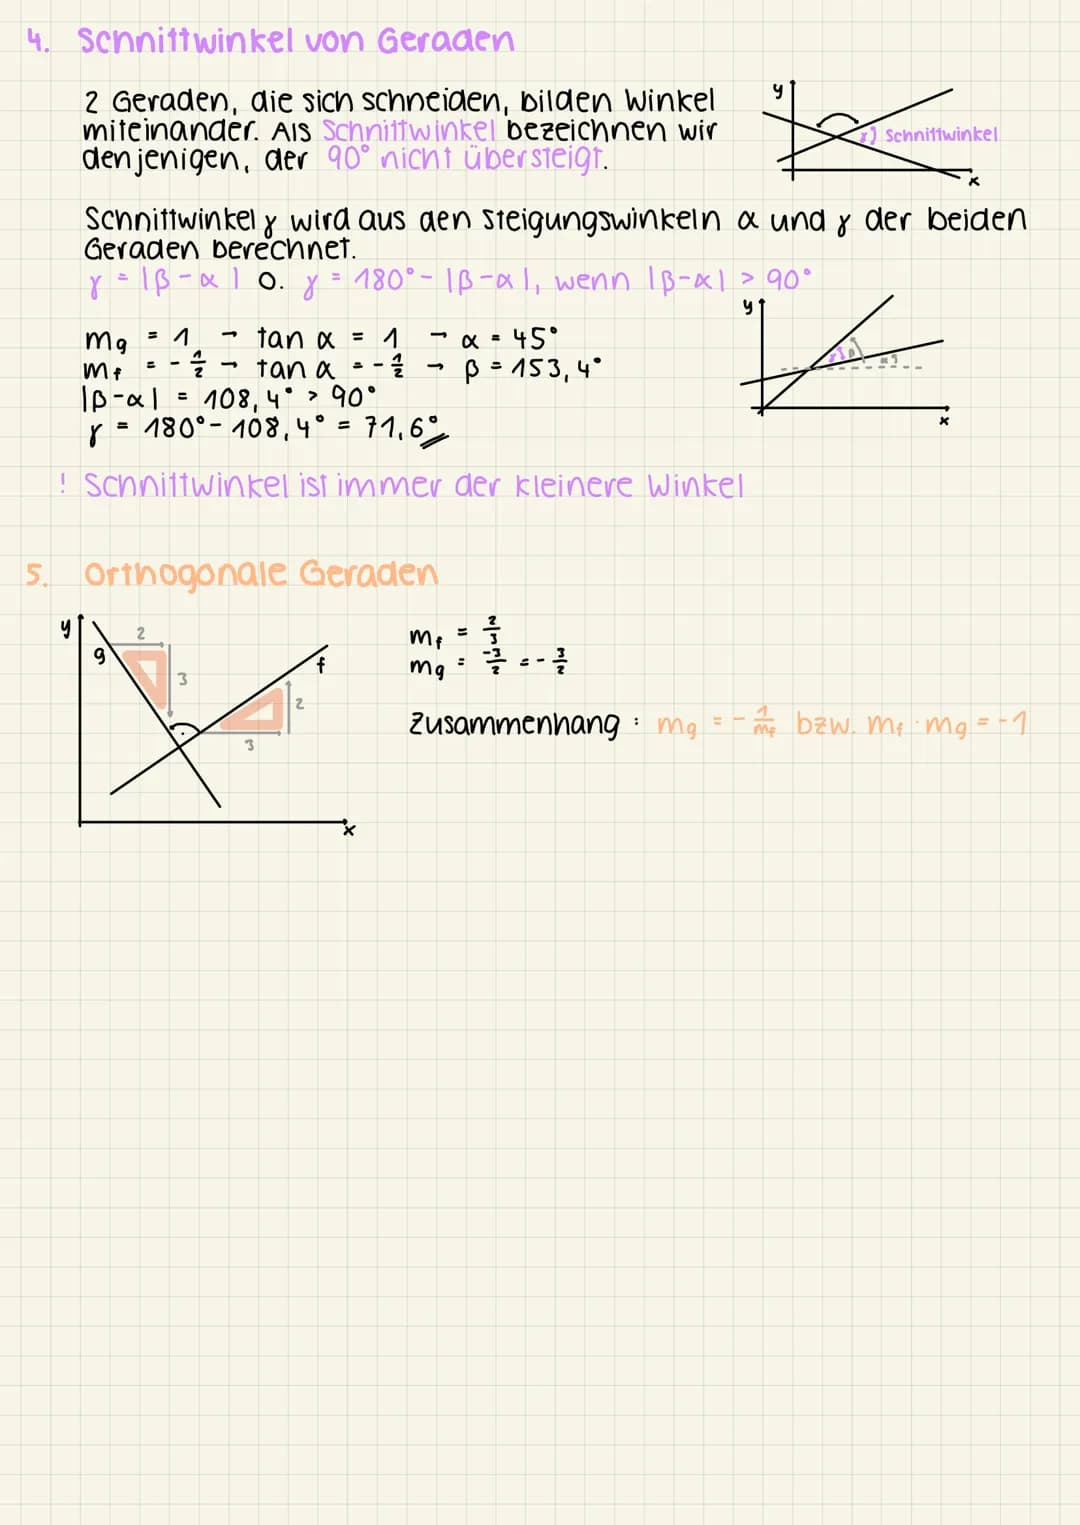 4. Schnittwinkel von Geraden
2 Geraden, die sich schneiden, bilden Winkel
miteinander. Als Schnittwinkel bezeichnen wir
denjenigen, der 90° nicht übersteigt.
y
γ) Schnittwinkel
x
Schnittwinkel γ wird aus den Steigungswinkeln α und γ der beiden
Geraden berechnet.
γ = |β-α| o. γ = 180° - |β-α|, wenn |β-α| > 90°
mg = 1 → tan α = 1 → α = 45°
mf = -1/2 → tan α = -1/2 → β = 153,4°
|β-α| = 108,4° > 90°
γ = 180° - 108,4° = 71,6°
y
γ β α
x
! Schnittwinkel ist immer der kleinere Winkel
5. Orthogonale Geraden
y
g
2
3
f
2
3
x
mf = 2/3
mg = -3/2 = -3/2
Zusammenhang : mg = -1/mf bzw. mf · mg = -1